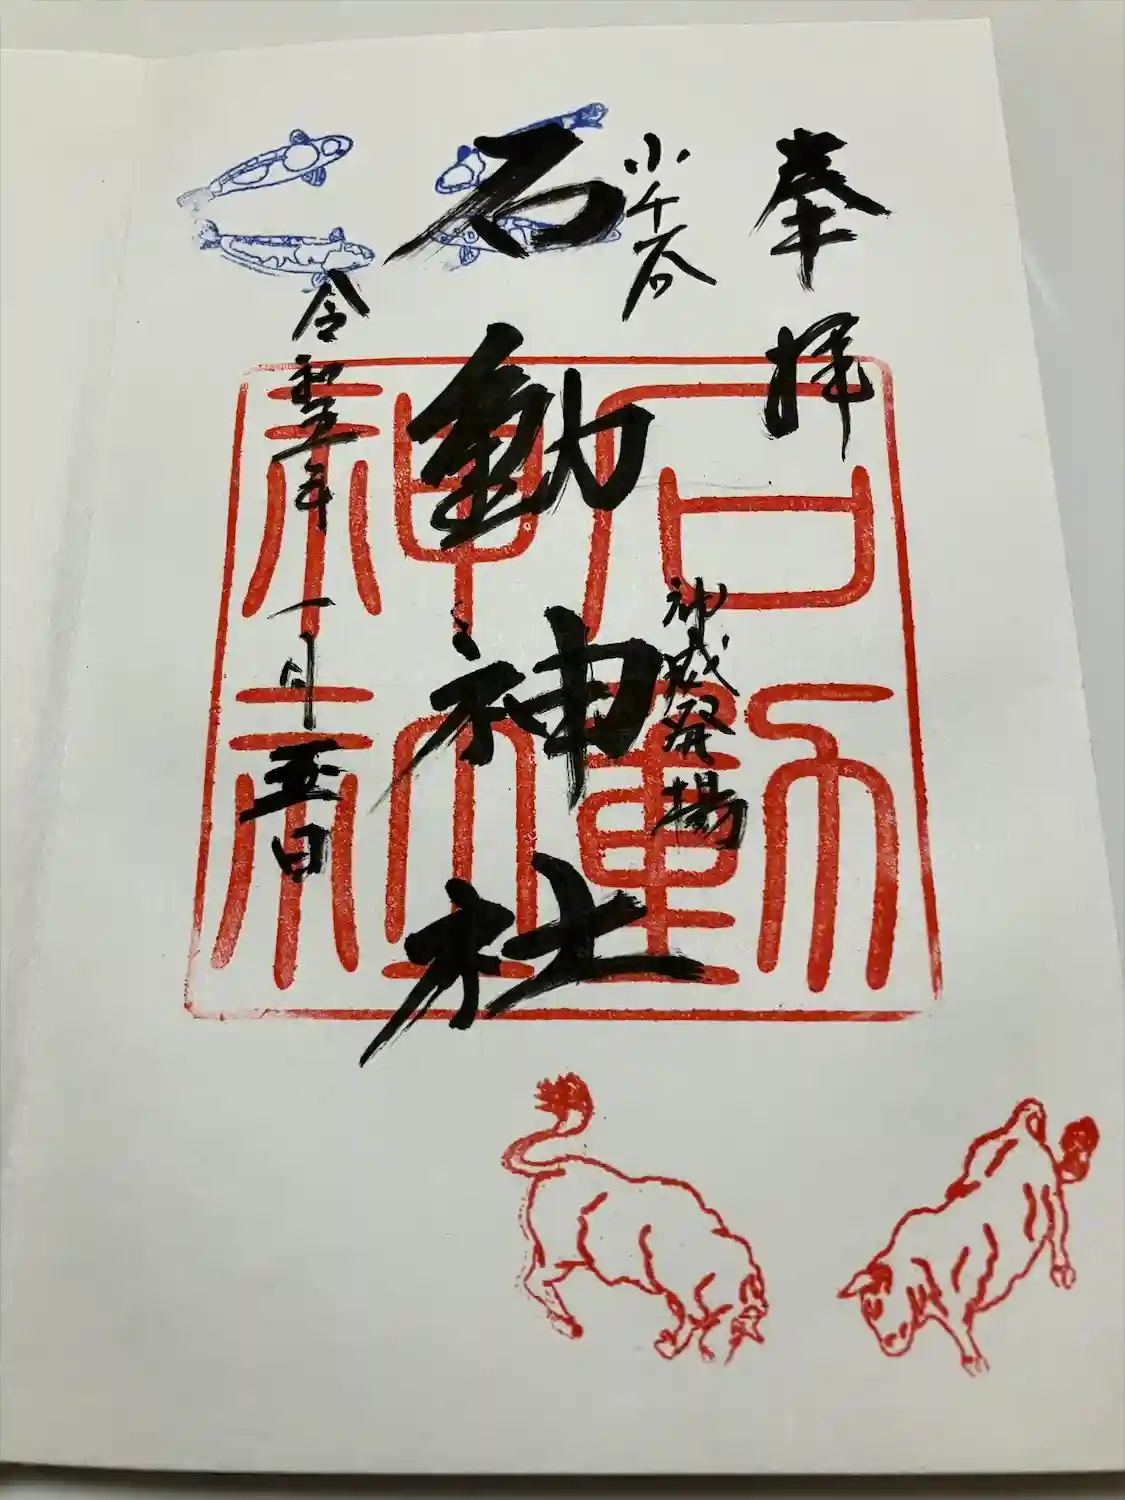 奉拝
小千谷
神威発揚
石動神社
令和五年一月五日
石動
神社